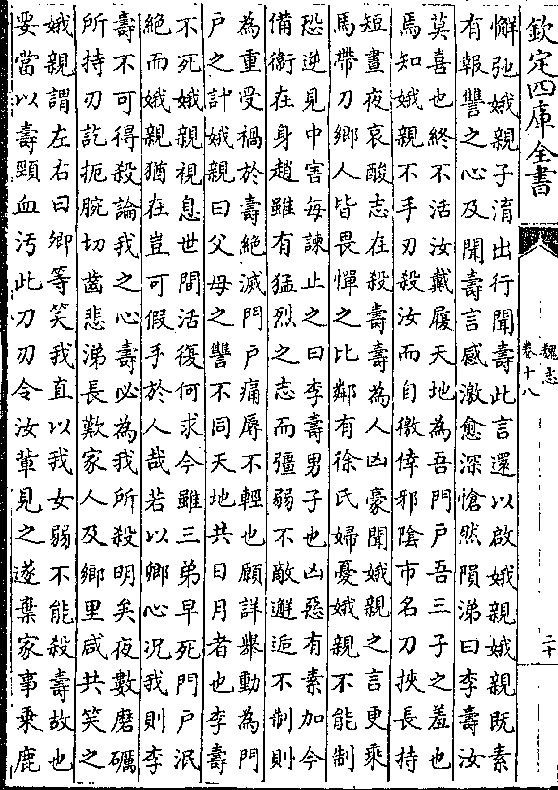 欽定四庫全書
魏志
卷十八
二十
懈弛娥親子淯出行聞壽此言還以啟娥親娥親既素
有報讐之心及聞壽言感激愈深愴然隕涕曰李壽汝
莫喜也終不活汝戴履天地為吾門戶吾三子之羞也
焉知娥親不手刃殺汝而自徼倖邪隂市名刀挾長持
短晝夜哀酸志在殺壽壽為人凶豪聞娥親之言更乘
馬帶刀鄉人皆畏憚之比鄰有徐氏婦憂娥親不能制
恐逆見中害每諫止之曰李壽男子也凶惡有素加今
備衛在身趙雖有猛烈之志而彊弱不敵邂逅不制則
為重受禍於壽絶滅門戶痛辱不輕也願詳舉動為門
戶之計娥親曰父母之讐不同天地共日月者也李壽
不死娥親視息世間活復何求今雖三弟早死門戶泯
絶而娥親猶在豈可假手於人哉若以卿心況我則李
壽不可得殺論我之心壽必為我所殺明矣夜數磨礪
所持刀訖扼腕切齒悲涕長歎家人及鄉里咸共笑之
娥親謂左右曰卿等笑我直以我女弱不能殺壽故也
要當以壽頸血汚此刀刃令汝輩見之遂棄家事乘鹿